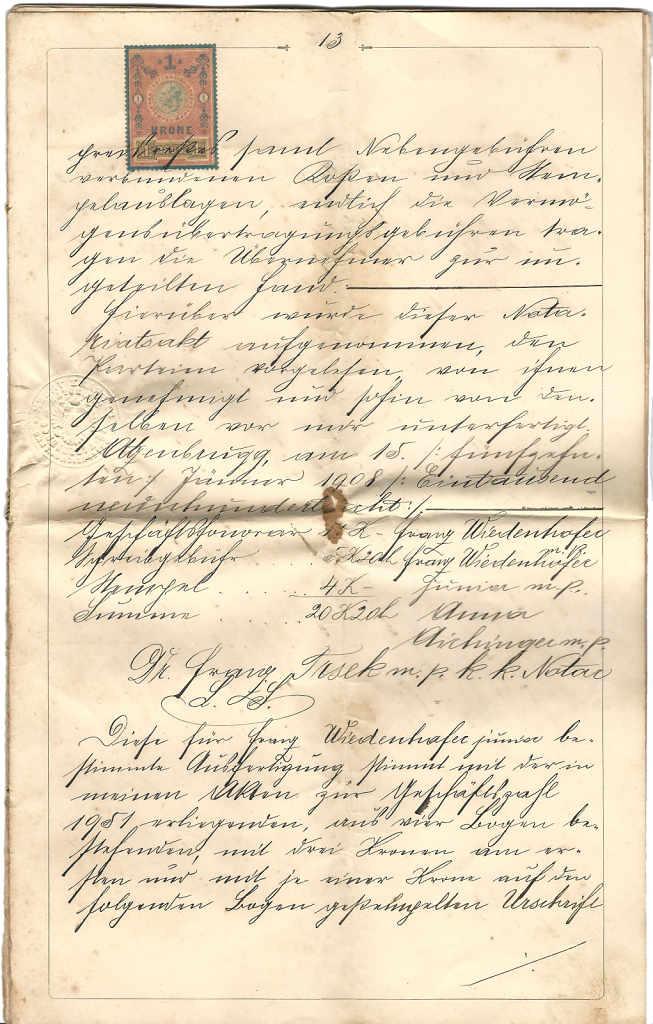 13
1
1 1
KRONE
samt Nebengebühren
verbundenen Kosten und Stem-
pelauslagen, endlich die Vermö-
gensübertragungsgebühren tra-
gen die Übernehmer zur un-
geteilten Hand.
Hierüber wurde dieser Nota-
riatsakt aufgenommen, den
Parteien vorgelesen, von ihnen
genehmigt und sohin von den-
selben vor mir unterfertigt.
am 15. /: fünfzehn-
ten :/ Jänner 1908 /: Eintausend
neunhundertacht :/.
Geschäftshonorar K- Franz Wiedenhofer
Schreibgebühr . . K20h Franz Wiedenhofer m. p.
Stempel . . . . 4K- junior m. p.
Summe . . . 20K20h Anna
Aichinger m. p.
Dr. Franz Trsek m. p. k. k. Notar
L. S.
Diese für Franz Wiedenhofer junior be-
stimmte Ausfertigung stimmt mit der in
meinen Akten zur Geschäftszahl
1951 erliegenden, aus vier Bogen be-
stehenden, mit drei Kronen am er-
sten und mit je einer Krone auf den
folgenden Bogen gestempelten Urschrift